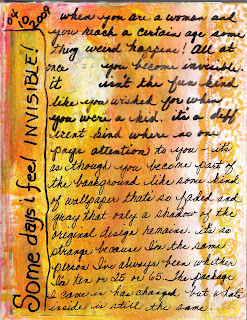 04
10, 2009
Some days i feel INVISIBLE!
when you are a woman and
you reach a certain age some
thing weird happens! All at
once you become invisible
it isn't the fun kind
like you wished for when
you were a kid. it's a diff
erent kind where no one
pays attention to you - its
as though you become part of
the background like some kind
of wallpaper thats so faded and
gray that only a shadow of the
original design remains. its so
strange because I'm the same
person I've always been whether
I'm ten or 35 or 65. The package
I came in has changed but whats
inside is still the same.